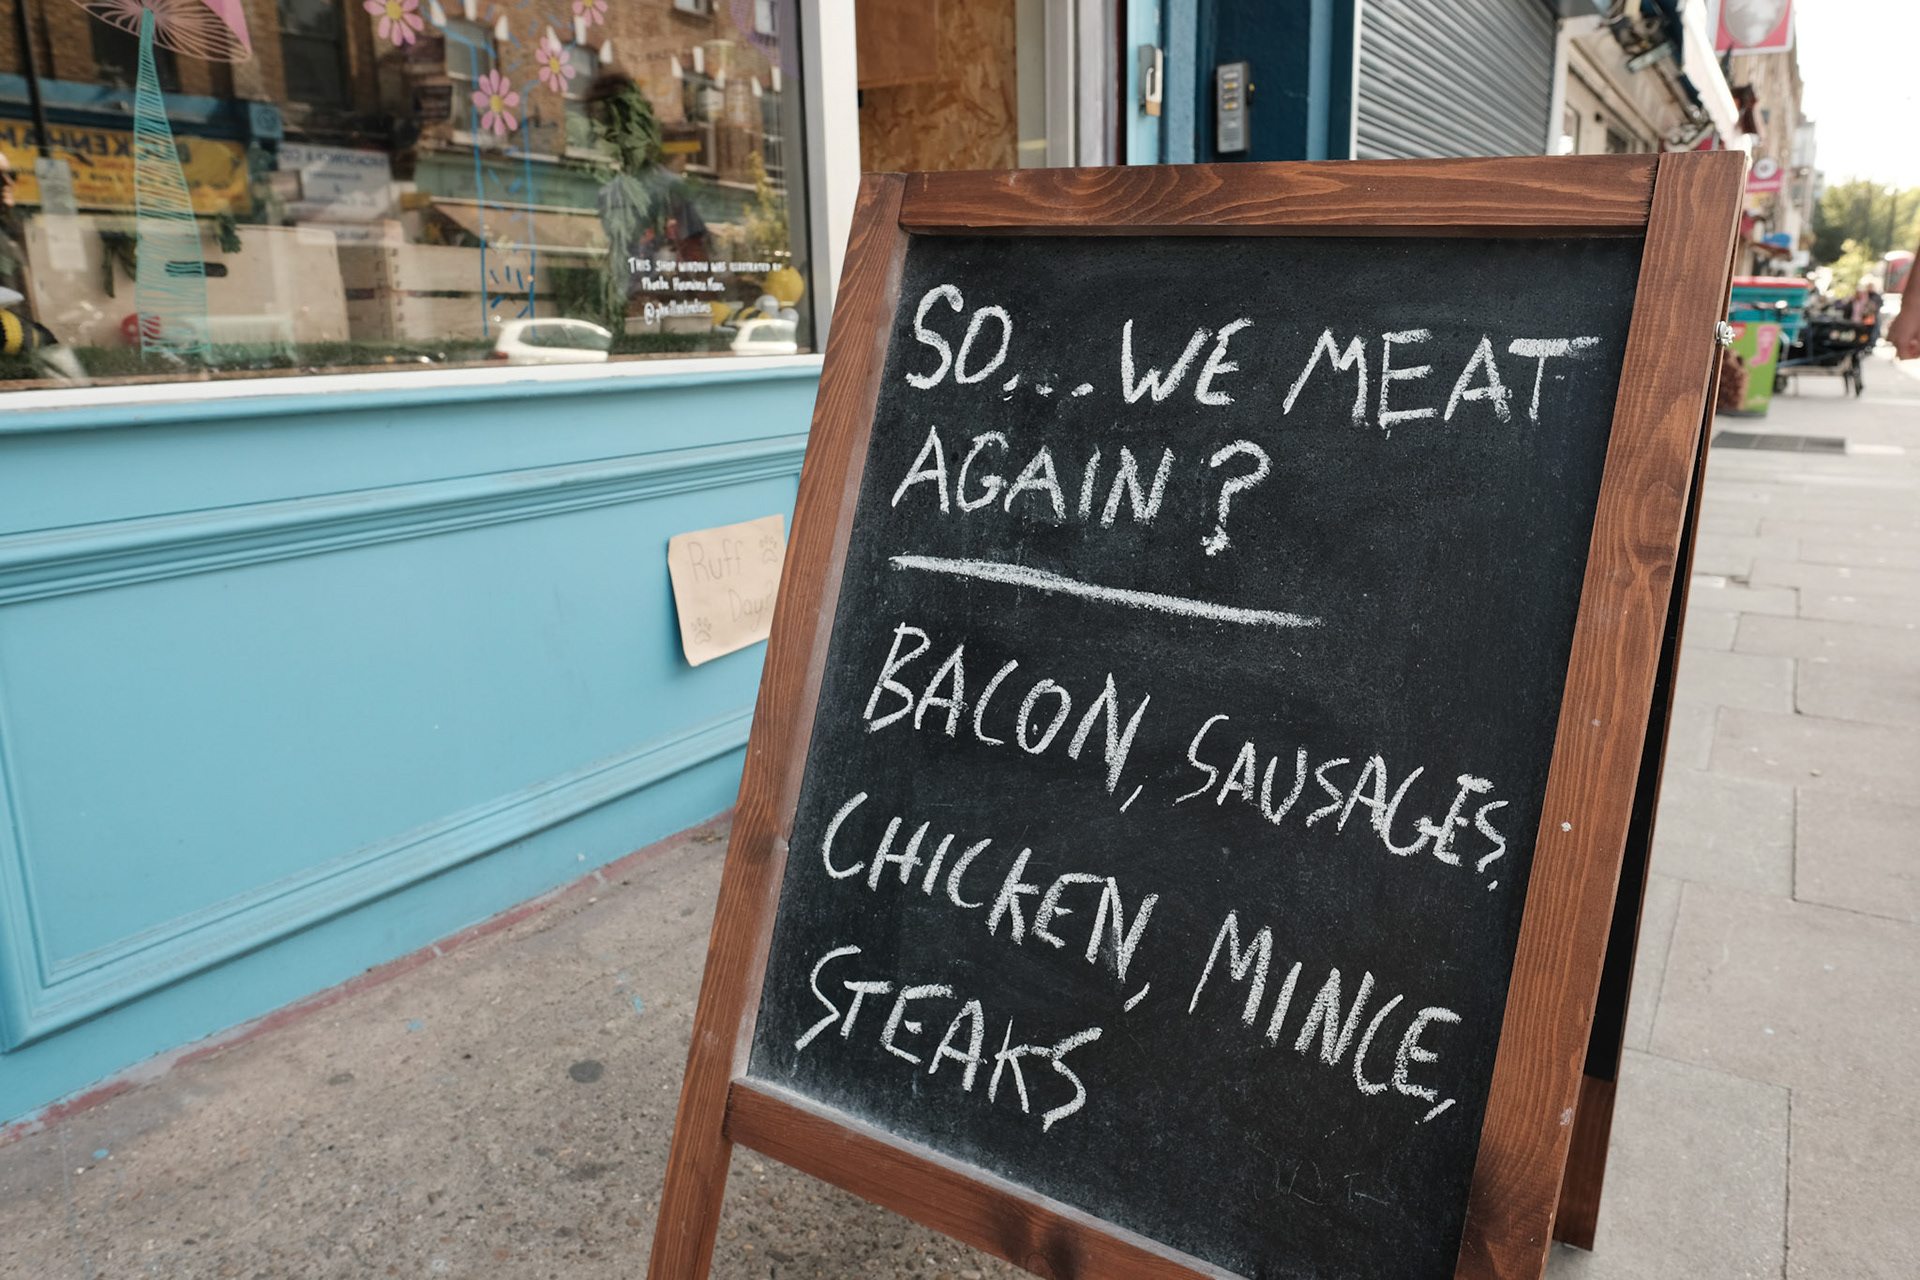 SO... WE MEAT
AGAIN?
BACON, SAUSAGES,
CHICKEN, MINCE,
STEAKS
Ruff
Day?
THIS SHOP WINDOW WAS ILLUSTRATED BY
Phoebe